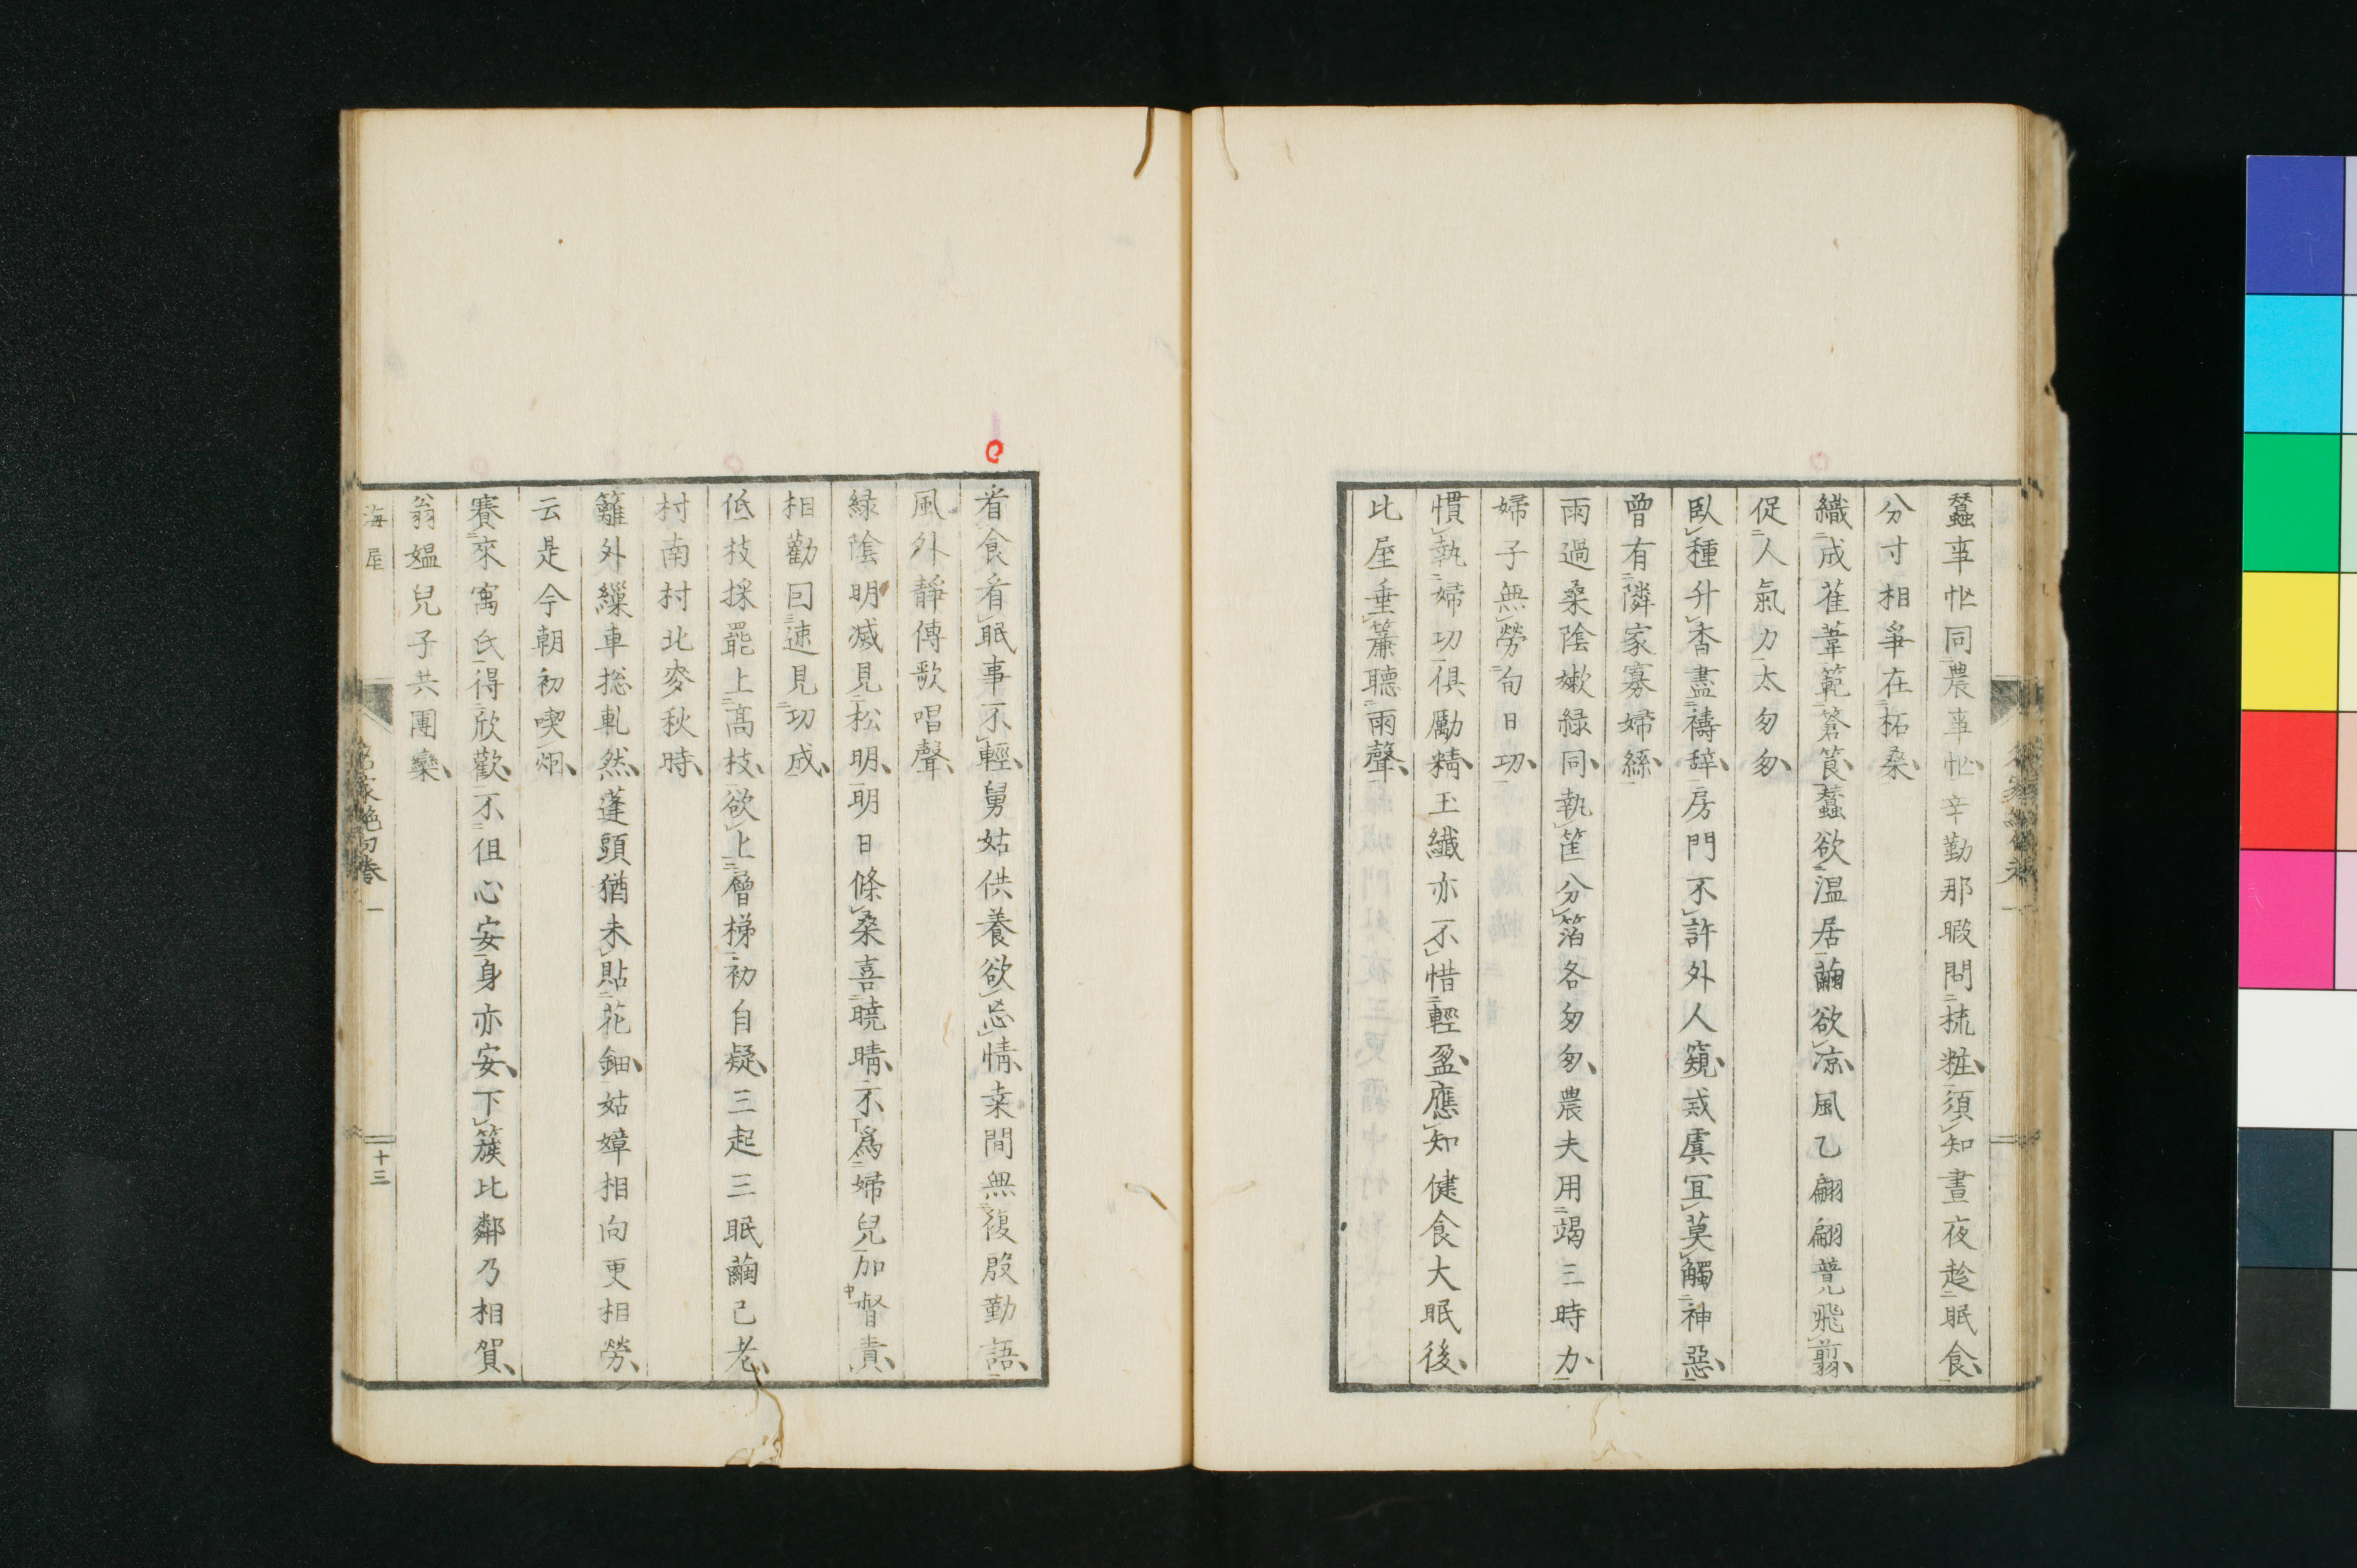 蠶事忙同農事忙辛勤那暇問梳粧須知晝夜趁眠食
分寸相爭在柘桑
織成萑葦範簀筤蠶欲溫居繭欲凉風乙翩翩普兒飛翦
促人氣力太匆匆
臥種升香盡禱辭房門不許外人窺戎虞宜莫觸神惡
曾有隣家寡婦絲
雨過桑陰嫩緑同執筐分箔各匆匆農夫用竭三時力
婦子無勞旬日功
慣執婦功俱勵精玉纖亦不惜輕盈應知健食大眠後
比屋垂簾聽雨聲
看食看眠事不輕舅姑供養欲忘情桒間無復殷勤語
風外靜傳歌唱聲
緑陰明滅見松明明日條桑喜曉晴不爲婦兒加督責
相勸囘速見功成
低枝採罷上髙枝欲上層梯初自疑三起三眠繭已老
村南村北麥秋時
籬外繅車捴軋然蓬頭猶未貼花鈿姑嫜相向更相勞
云是今朝初喫烟
賽來寓氏得欣歡不但心安身亦安下簇比鄰乃相賀
翁媼兒子共團欒
海屋
家絶句卷一
十三